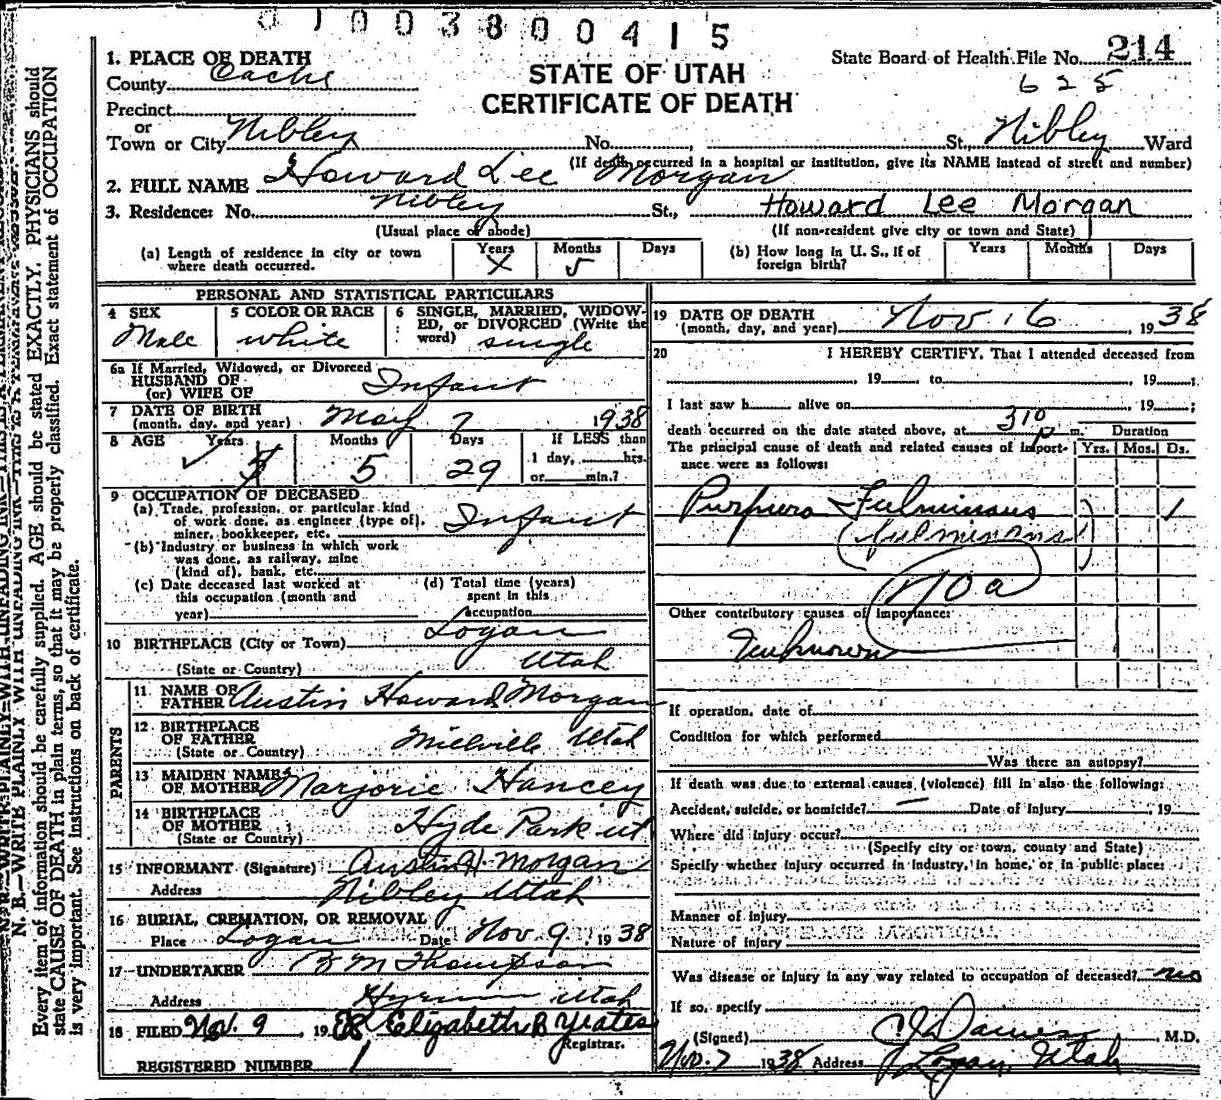 0 1 0 0 3 8 0 0 4 1 5
STATE OF UTAH
CERTIFICATE OF DEATH
State Board of Health File No. 214
625
1. PLACE OF DEATH
County Cache
Precinct
or
Town or City Nibley No. , St., Nibley Ward
(If death occurred in a hospital or institution, give its NAME instead of street and number)
2. FULL NAME Howard Lee Morgan
3. Residence: No. Nibley St., Howard Lee Morgan
(Usual place of abode) (If non-resident give city or town and State)
(a) Length of residence in city or town where death occurred. Years X Months 5 Days
(b) How long in U. S., if of foreign birth? Years Months Days
PERSONAL AND STATISTICAL PARTICULARS
4 SEX Male
5 COLOR OR RACE white
6 SINGLE, MARRIED, WIDOWED, or DIVORCED (Write the word) single
6a If Married, Widowed, or Divorced
HUSBAND OF
(or) WIFE OF Infant
7 DATE OF BIRTH
(month, day, and year) May 7 1938
8 AGE Years Months 5 Days 29 If LESS than
1 day, hrs.
or min.?
9 OCCUPATION OF DECEASED
(a) Trade, profession, or particular kind
of work done, as engineer (type of),
miner, bookkeeper, etc. Infant
(b) Industry or business in which work
was done, as railway, mine
(kind of), bank, etc.
(c) Date deceased last worked at
this occupation (month and
year)
(d) Total time (years)
spent in this
occupation
10 BIRTHPLACE (City or Town) Logan
(State or Country) Utah
PARENTS
11 NAME OF
FATHER Austin Howard Morgan
12 BIRTHPLACE
OF FATHER
(State or Country) Millville Utah
13 MAIDEN NAME
OF MOTHER Marjorie Hancey
14 BIRTHPLACE
OF MOTHER
(State or Country) Hyde Park ut
15 INFORMANT (Signature) Austin H. Morgan
Address Nibley Utah
16 BURIAL, CREMATION, OR REMOVAL
Place Logan Date Nov 9, 1938
17 UNDERTAKER M Thompson
Address Hyrum Utah
18 FILED Nov. 9, 1938 Elizabeth B Yeates
Registrar.
REGISTERED NUMBER 1
19 DATE OF DEATH
(month, day, and year) Nov. 6, 1938
20 I HEREBY CERTIFY, That I attended deceased from
, 19 , to , 19 ;
I last saw h alive on , 19 ;
death occurred on the date stated above, at 310 p m. Duration
The principal cause of death and related causes of importance were as follows: Yrs. Mos. Ds.
Purpura Fulminaus 1
(fulminans)
70a
Other contributory causes of importance:
Unknown
If operation, date of
Condition for which performed
Was there an autopsy?
If death was due to external causes (violence) fill in also the following:
Accident, suicide, or homicide? — Date of Injury , 19
Where did injury occur?
(Specify city or town, county and State)
Specify whether injury occurred in industry, in home, or in public place:
Manner of injury
Nature of injury
Was disease or injury in any way related to occupation of deceased? no
If so, specify
(Signed) , M.D.
Nov. 7 1938 Address Logan, Utah
N. B.—WRITE PLAINLY WITH UNFADING INK—THIS IS A PERMANENT RECORD
Every item of information should be carefully supplied. AGE should be stated EXACTLY. PHYSICIANS should
state CAUSE OF DEATH in plain terms, so that it may be properly classified. Exact statement of OCCUPATION
is very important. See instructions on back of certificate.